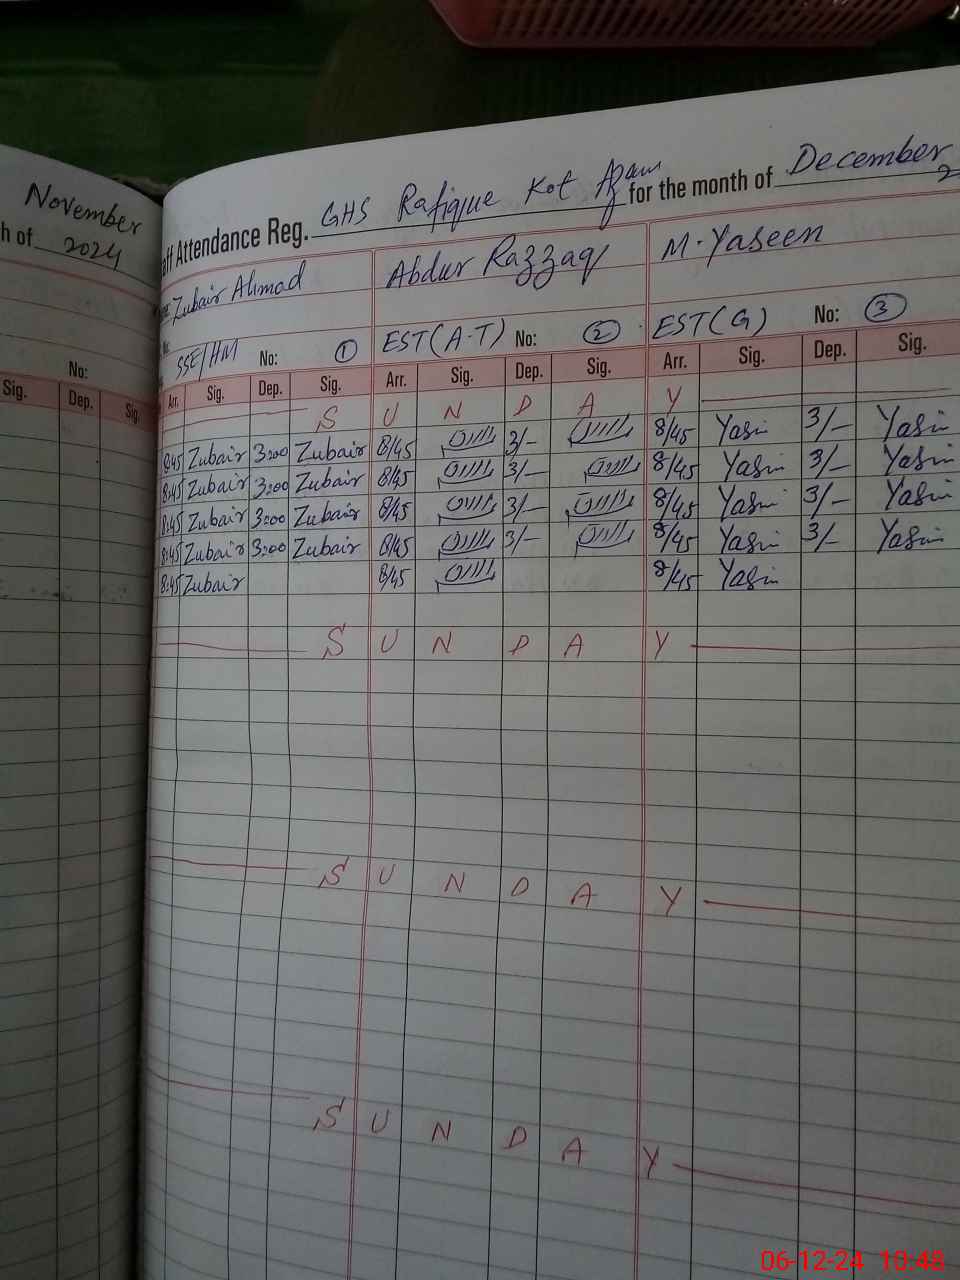 November
h of 2024
No:
Sig. Dep. Sig.
aff Attendance Reg. GHS Rafique Kot Azam for the month of December 2
Zubair Ahmad Abdur Razzaq M. Yaseen
SSE/HM No: 1 EST(A.T) No: 2 EST(G) No: 3
Arr. Sig. Dep. Sig. Arr. Sig. Dep. Sig. Arr. Sig. Dep. Sig.
S U N D A Y
8:45 Zubair 3:00 Zubair 8/45 3/- 8/45 Yasin 3/- Yasin
8:45 Zubair 3:00 Zubair 8/45 3/- 8/45 Yasin 3/- Yasin
8:45 Zubair 3:00 Zubair 8/45 3/- 8/45 Yasin 3/- Yasin
8:45 Zubair 3:00 Zubair 8/45 3/- 8/45 Yasin 3/- Yasin
8:45 Zubair 8/45 8/45 Yasin
S U N D A Y
S U N D A Y
S U N D A Y
06-12-24 10:48